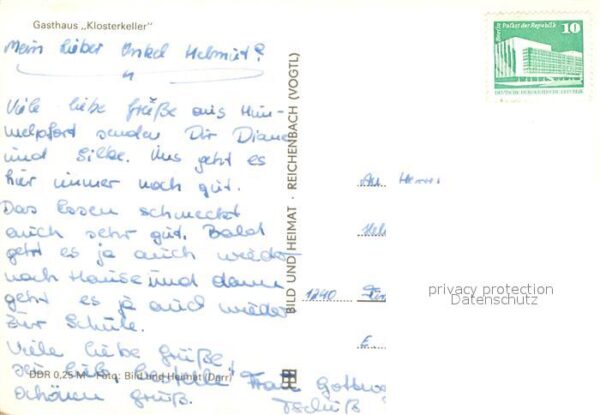 Gasthaus „Klosterkeller"
Mein lieber Onkel Helmut!
Viele liebe Grüße aus Him-
melpfort senden Dir Diana
und Silke. Uns geht es
hier immer noch gut.
Das Essen schmeckt
auch sehr gut. Bald
geht es ja auch wieder
nach Hause und dann
geht es ja auch wieder
zur Schule.
Viele liebe Grüße!
schönen Gruß.
Tschüß
DDR 0,25 M · Foto: Bild und Heimat (Darr)
BILD UND HEIMAT · REICHENBACH (VOGTL)
Berlin, Palast der Republik
10
DEUTSCHE DEMOKRATISCHE REPUBLIK
An Herrn
Hel
1240
E.
privacy protection
Datenschutz